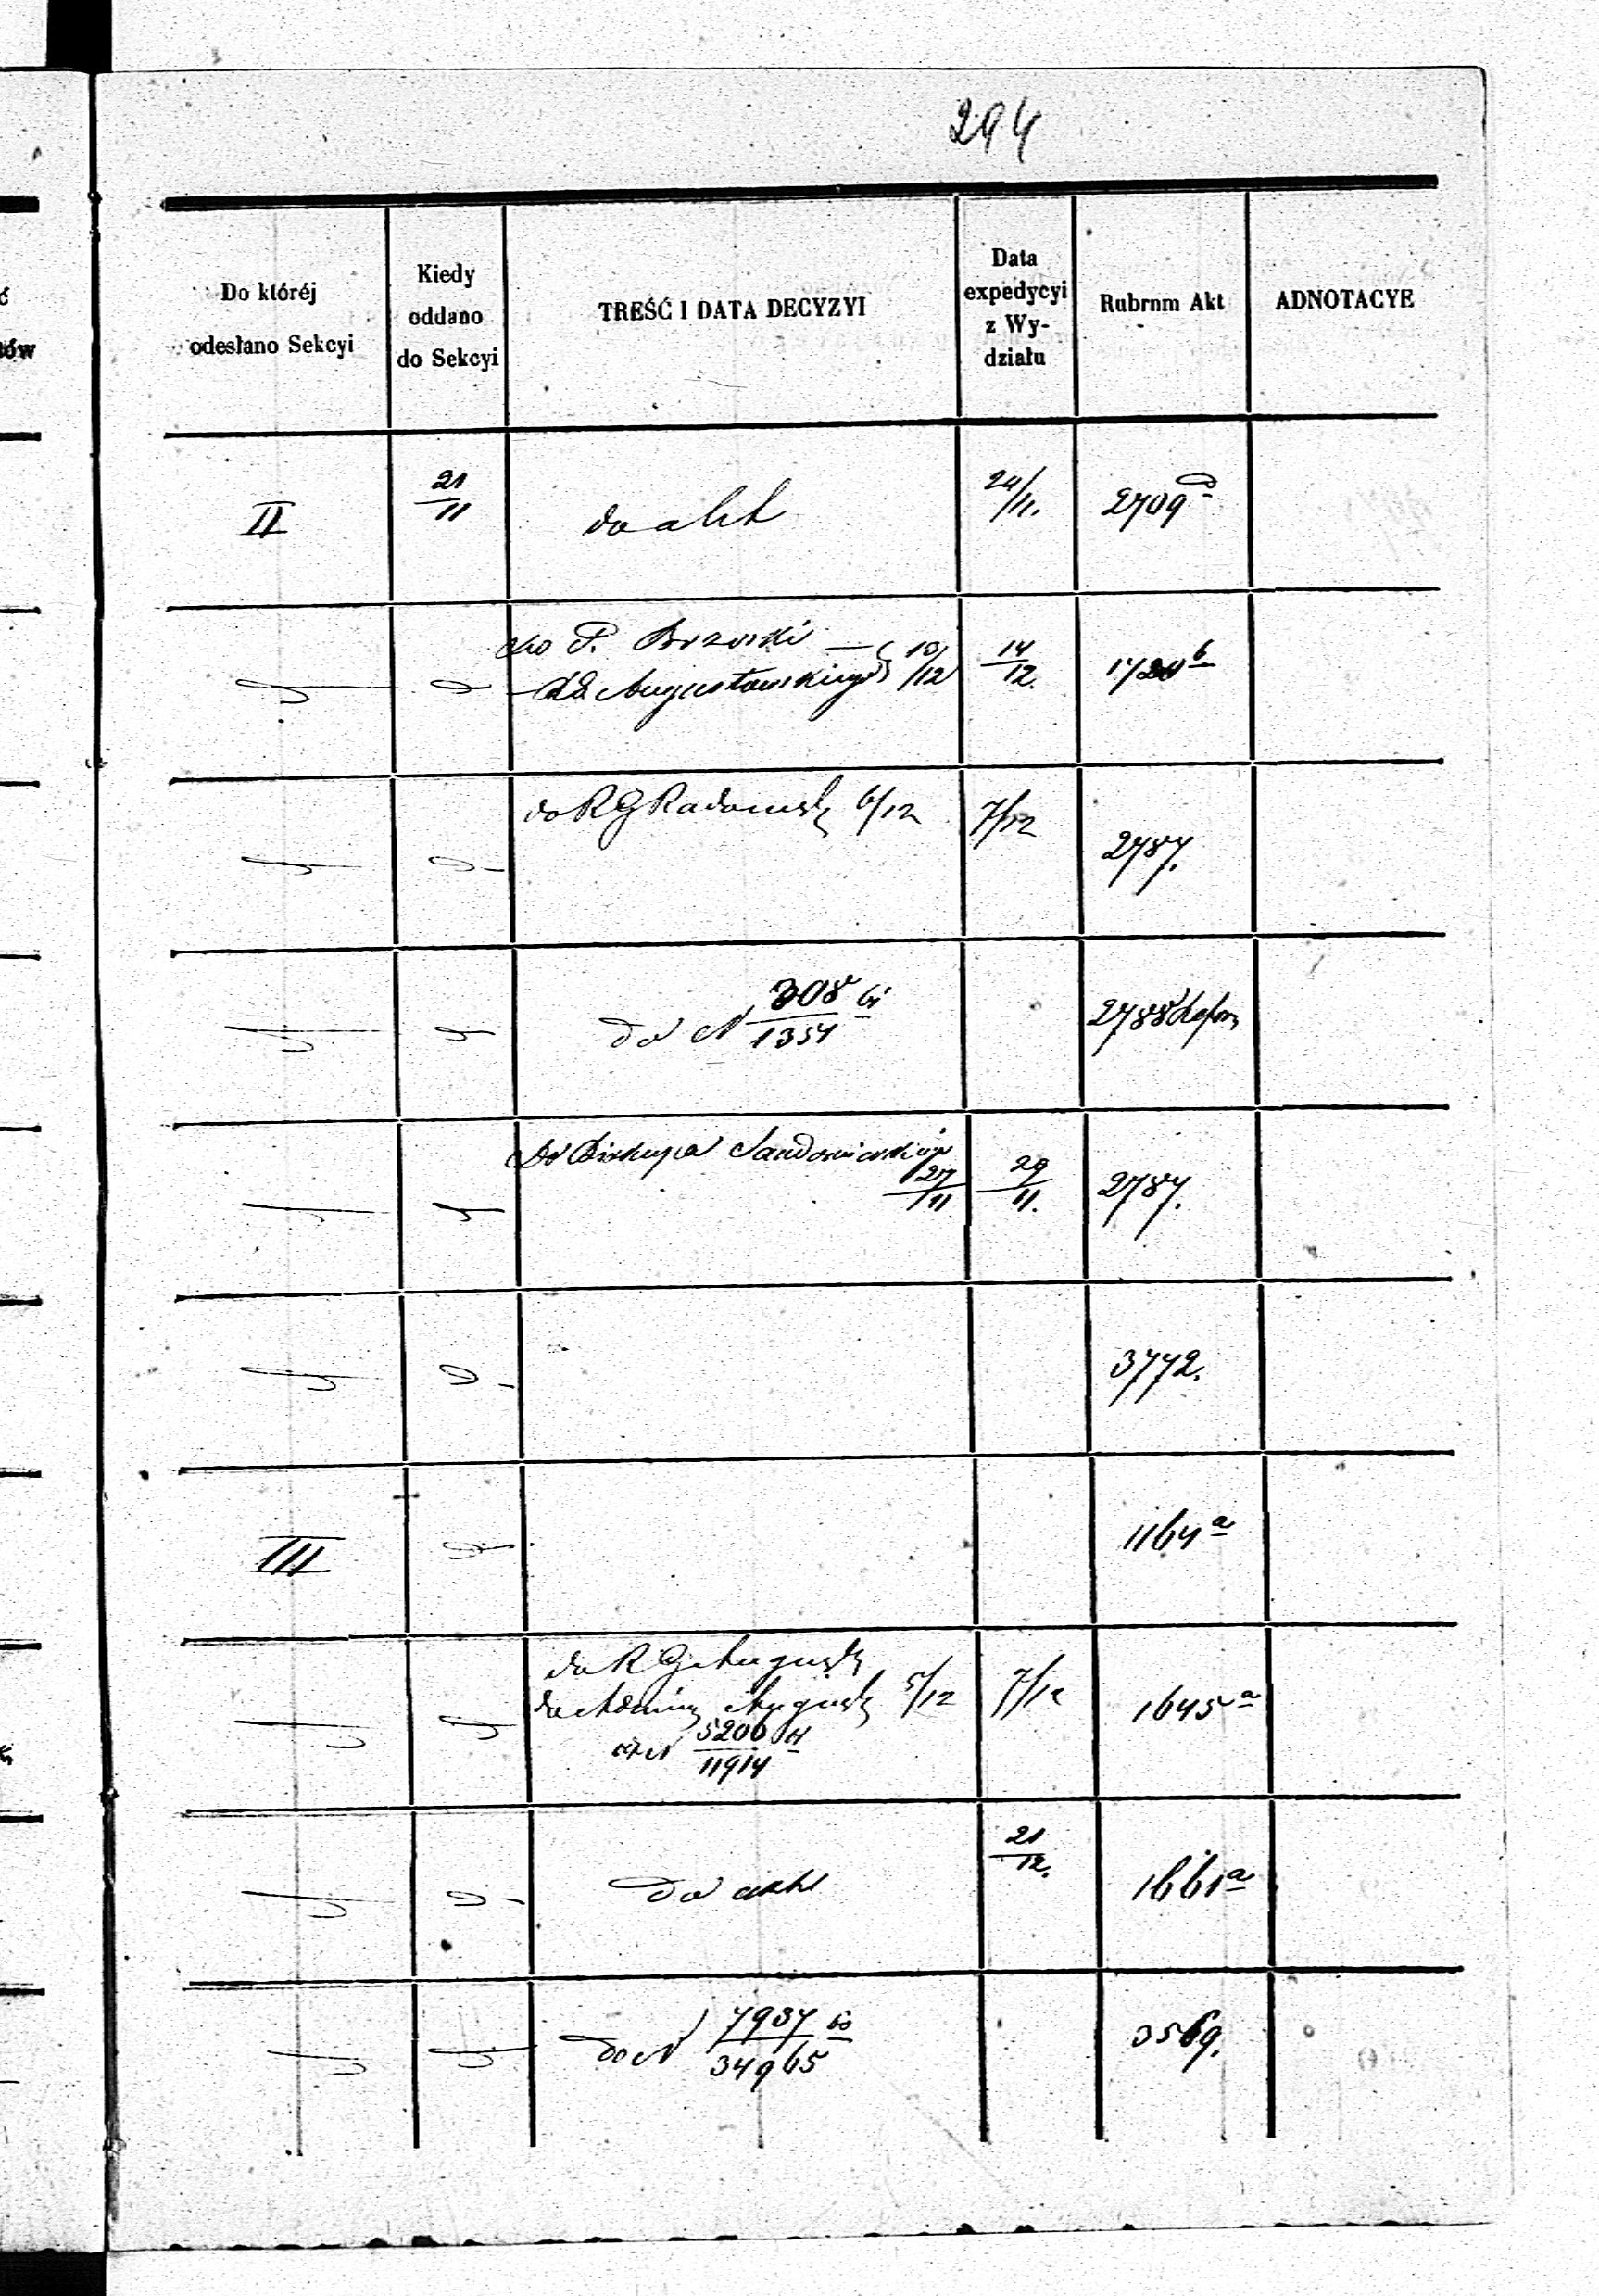 294
Do któréj
odesłano Sekcyi
Kiedy
oddano
do Sekcyi
TREŚĆ I DATA DECYZYI
Data
expedycyi
z Wy-
działu
Rubrnm Akt
ADNOTACYE
II
21/11
do akt
24/11.
2709
do P. Brzoski
Augustowskiego 13/12
14/12.
b
do R G Radomsk 6/12
7/12
2787.
do N 308/1354
2788
Do Biskupa Sandomierskiego
27/11
29/11.
2787.
3772.
III
1164 a
do R G August
do August 5/12
N 5200/11914
7/12
1645 a
do akt
21/12.
1661 a
do N 7937/34965
3569.